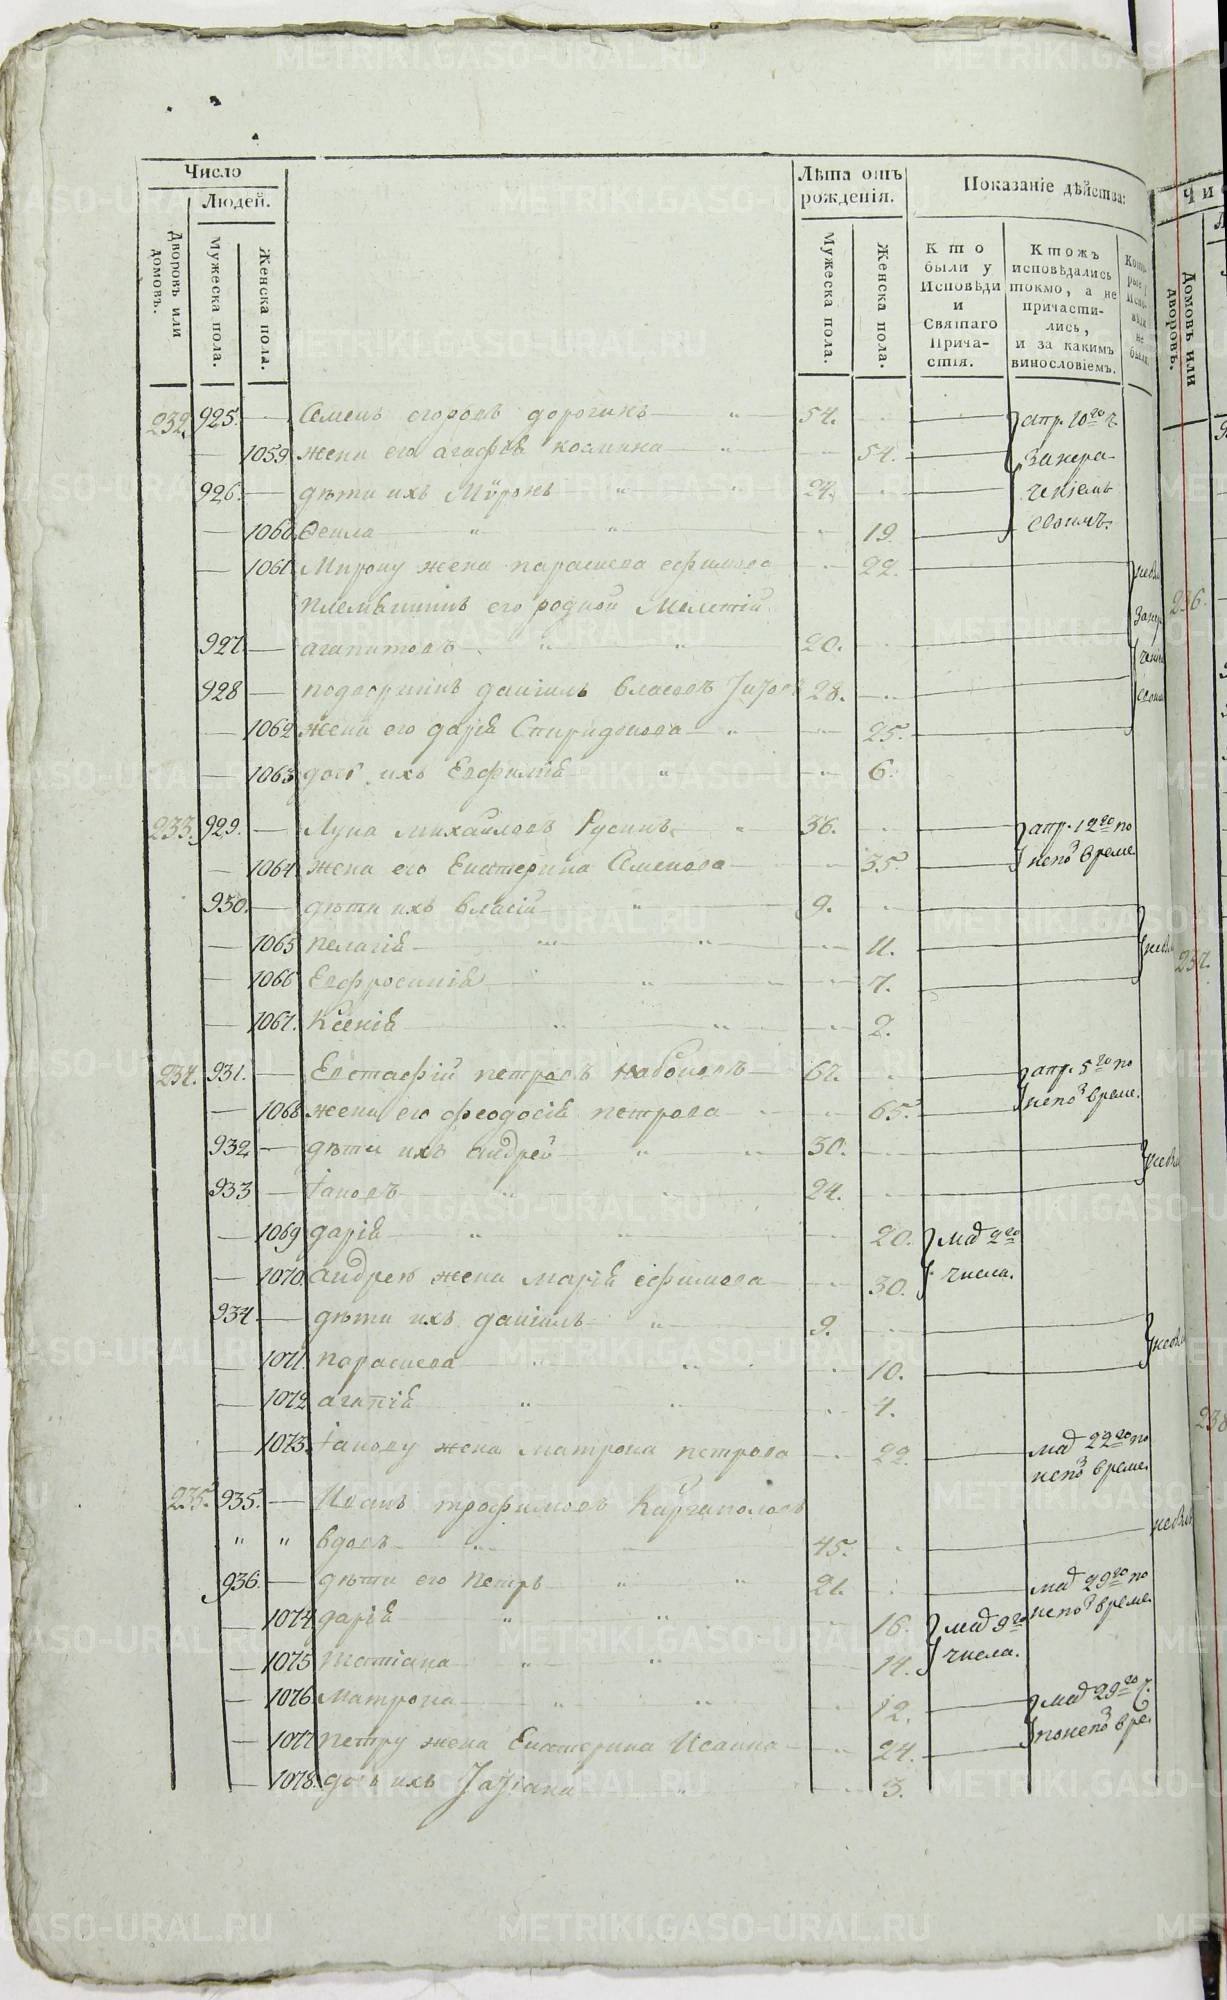 Число
Людей.
Дворовъ или домовъ.
Мужеска пола.
Женска пола.
Лѣта отъ рожденія.
Мужеска пола.
Женска пола.
Показаніе дѣйства:
Кто были у Исповѣди и Святаго Причастія.
Ктожъ исповѣдались токмо, а не причастились, и за какимъ винословіемъ.
232. 925. Семенъ егоровъ дорогинъ 54. апр. 10го ч.
1059 жена его агафія козмина 54. За нера-
926. дѣти ихъ Мѵронъ 24. ченіемъ
1060 Ѳекла 19. своимъ.
1061 Мирону жена парасковa ефимова 22.
племянникъ его родной Мелетій
927. агапитовъ 20.
928 подворникъ даніилъ власовъ 28.
1062 жена его дарія Спиридонова 25.
1063 дочь ихъ Евфимія 6.
233. 929. Лука михайловъ Русинъ 36. апр. 12го по
1064 жена его Екатерина Семенова 35. непо време.
930. дѣти ихъ власій 9.
1065 пелагія 11.
1066 Евфросинія 7.
1067. Ксенія 2.
234. 931. Евстафій петровъ Набоковъ 67. апр. 5го по
1068 жена его феодосія петрова 65. непо време.
932 дѣти ихъ андрей 30.
933 іаковъ 24.
1069 дарія 20. маія 9го
1070 андрею жена марія ефимова 30. числа.
934. дѣти ихъ даніилъ 9.
1071 парасковa 10.
1072 агапія 4.
1073. іакову жена матрона петрова 22. маія 22го по непо време.
235. 935. Иванъ трофимовъ Каргаполовъ
" " вдовъ 45.
936. дѣти его петръ 21. маія 29го по
1074 дарія 16. маія 9го непо време.
1075 татіана 14. числа.
1076 матрона 12. маія 29го ч.
1077 петру жена Екатерина Исакова 24. по непо вре.
1078. дочь ихъ Татіана 3.
Домовъ или дворовъ.
236.
237.
238
METRIKI.GASO-URAL.RU